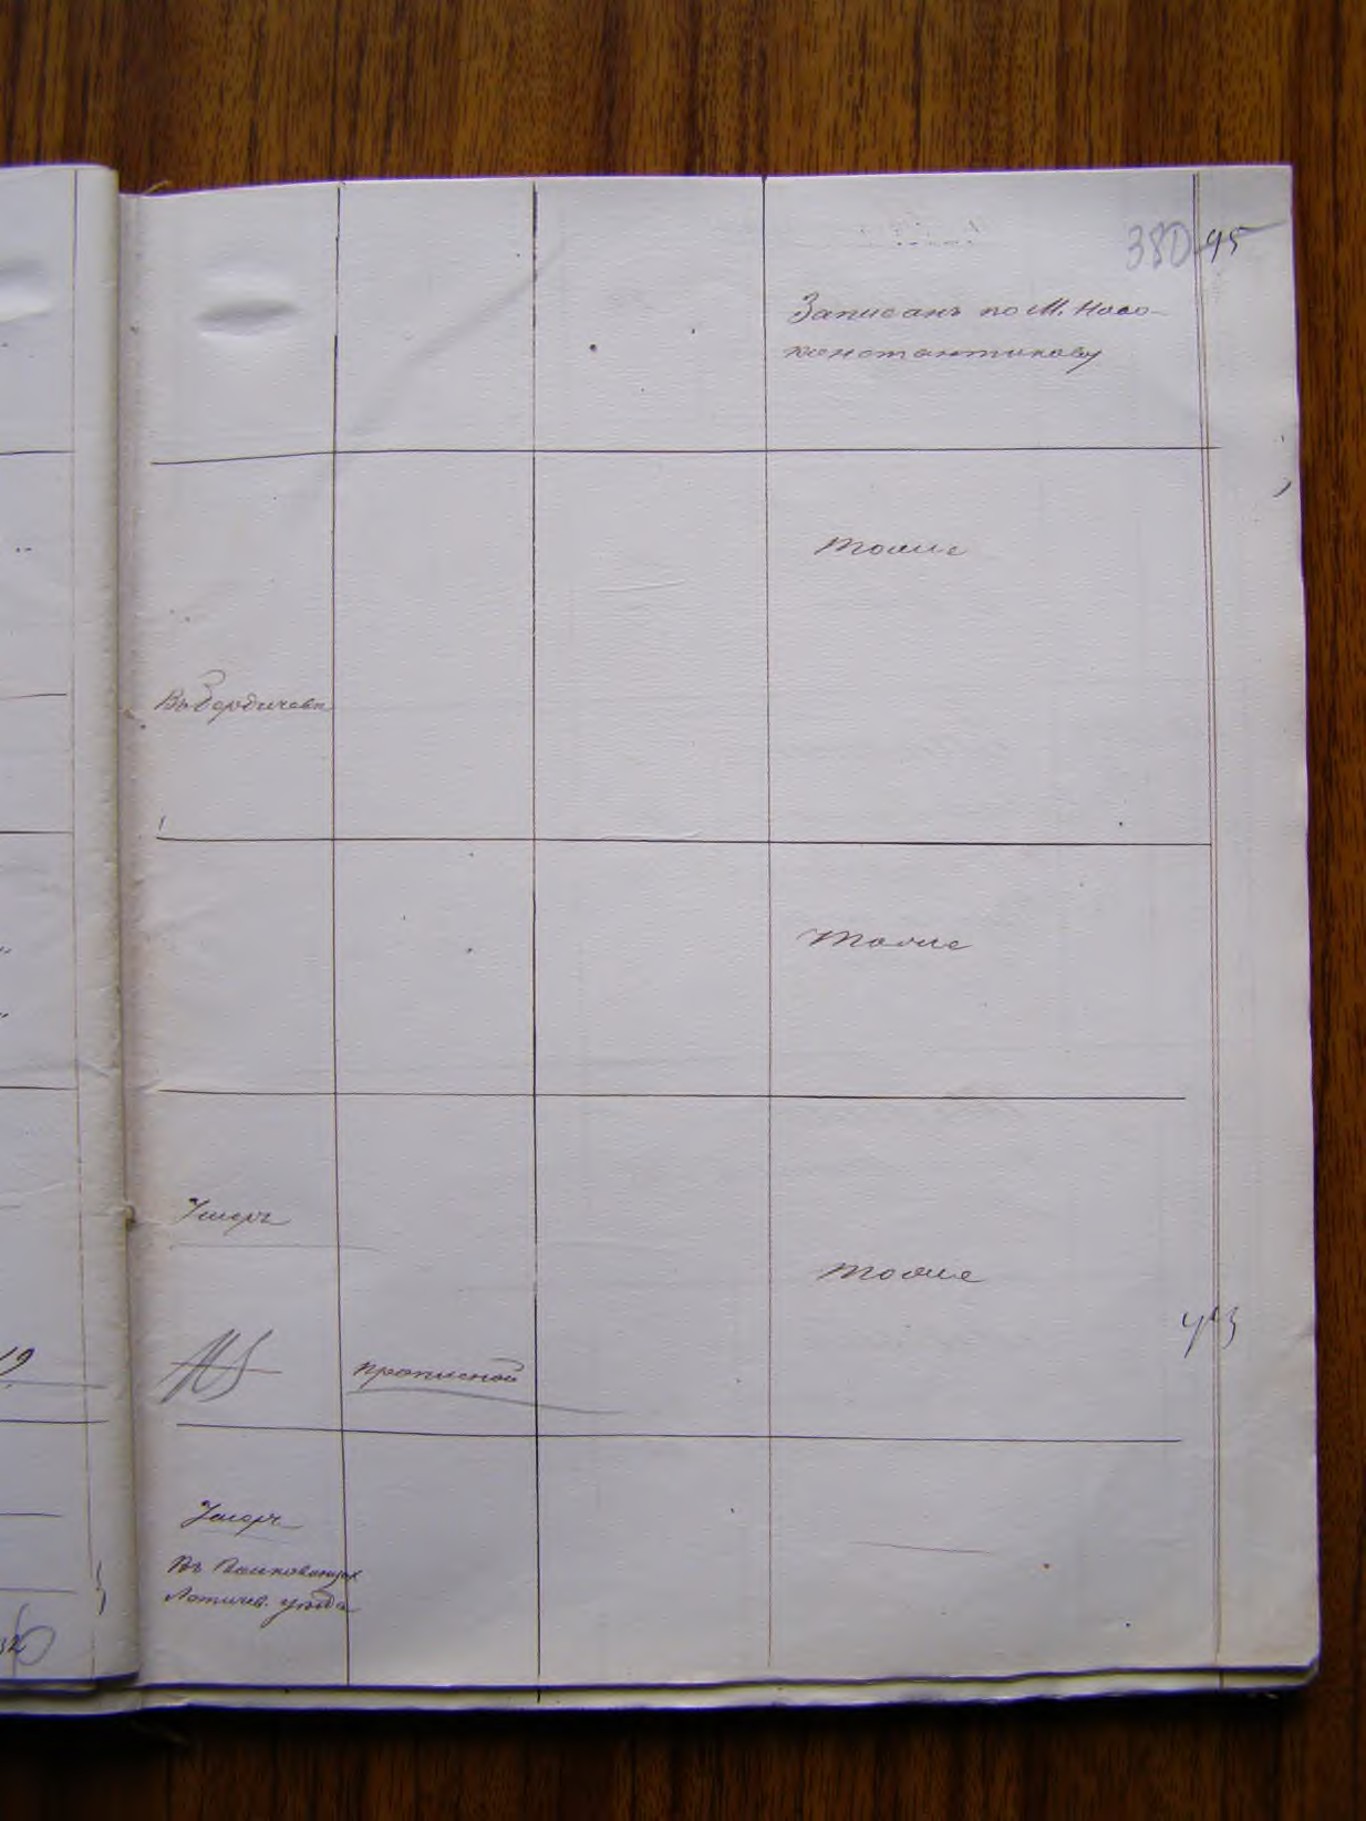 380 95
Записанъ по М. Ново-
константинову
тоже
Въ Бердичевѣ
тоже
Умеръ
тоже
прописной
Умеръ
Въ
Летичев. уѣзда